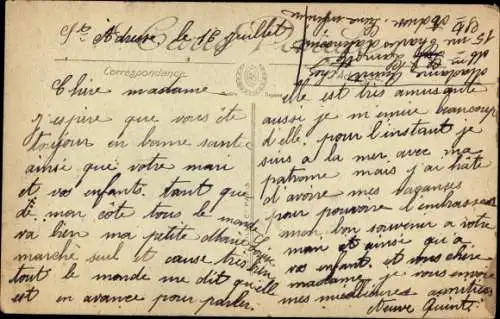 Ste Adresse le 18 juillet
Carte Postale
Correspondance
Chère madame
J'espère que vous ête
toujour en bonne santé
ainsi que votre mari
et vos enfants. tant que
de mon côté tous le monde
va bien ma petite Marie
marché seul et cause très bien
tout le monde me dit qu'elle
est en avance pour parler.
elle est très amusante
aussi je m'ennuie beaucoup
d'elle, pour l'instant je
suis a la mer avec ma
patronne mais j'ai hâte
d'avoire mes vaquances
pour pouvoire l'embrasser
mon bon souvenir a votre
man et ainsi qu'a
vos enfants et vous chère
madame je vous envoie
mes meilleures amitiées
Madame
15 rue